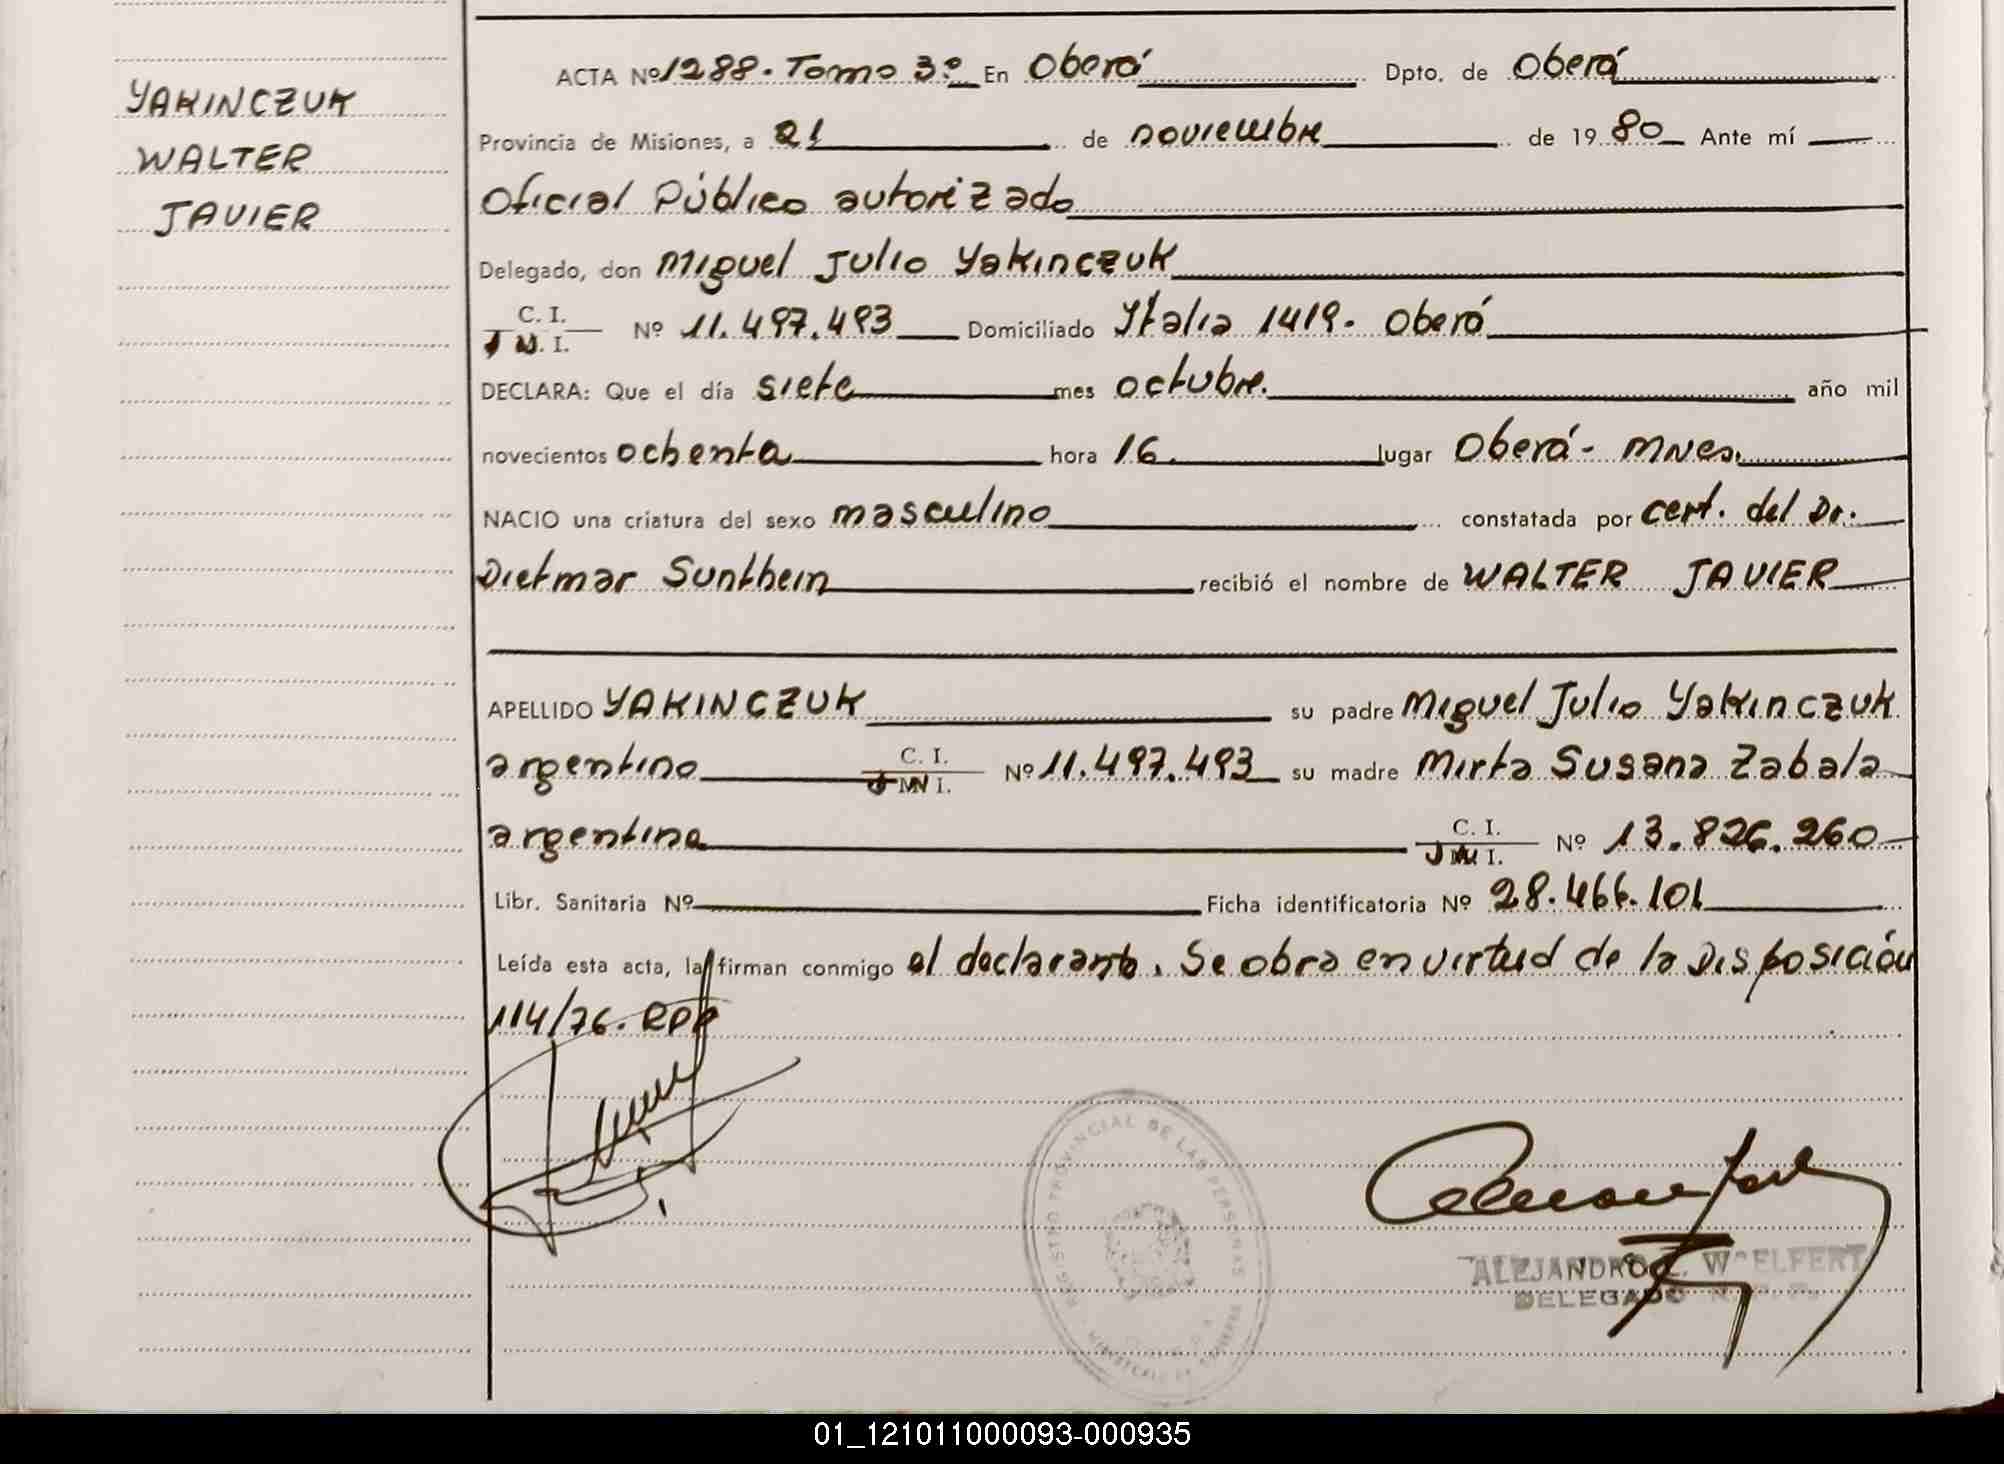 YAKINCZUK
WALTER
JAVIER
ACTA Nº 1288. Tomo 3º En Oberá Dpto. de Oberá
Provincia de Misiones, a 21 de noviembre de 1980 Ante mí
Oficial Público autorizado
Delegado, don Miguel Julio Yakinczuk
C. I.
Nº 11.497.493 Domiciliado Italia 1419. Oberá
DECLARA: Que el día siete mes octubre. año mil
novecientos ochenta hora 16. lugar Oberá - Mnes.
NACIO una criatura del sexo masculino constatada por cert. del Dr.
Dietmar Sunthein recibió el nombre de WALTER JAVIER
APELLIDO YAKINCZUK su padre Miguel Julio Yakinczuk
argentino C. I. Nº 11.497.493 su madre Mirta Susana Zabala
argentina C. I. Nº 13.826.260
Libr. Sanitaria Nº Ficha identificatoria Nº 28.466.101
Leída esta acta, la firman conmigo el declarante. Se obra en virtud de la Disposición
114/76. RPP
REGISTRO PROVINCIAL DE LAS PERSONAS
ALEJANDRO
DELEGADO
01_121011000093-000935